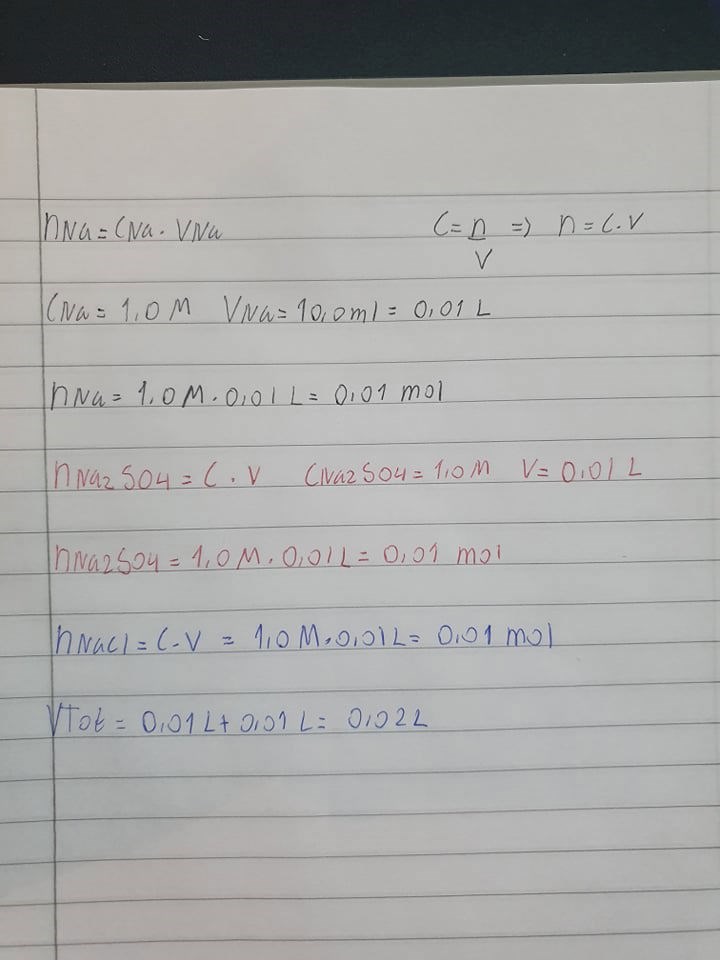 nNa = CNa · VNa C = n/V => n = C·V
CNa = 1,0 M VNa = 10,0ml = 0,01 L
nNa = 1,0 M · 0,01 L = 0,01 mol
nNa2SO4 = C · V CNa2SO4 = 1,0 M V = 0,01 L
nNa2SO4 = 1,0 M · 0,01 L = 0,01 mol
nNaCl = C·V = 1,0 M · 0,01 L = 0,01 mol
VTot = 0,01 L + 0,01 L = 0,02 L